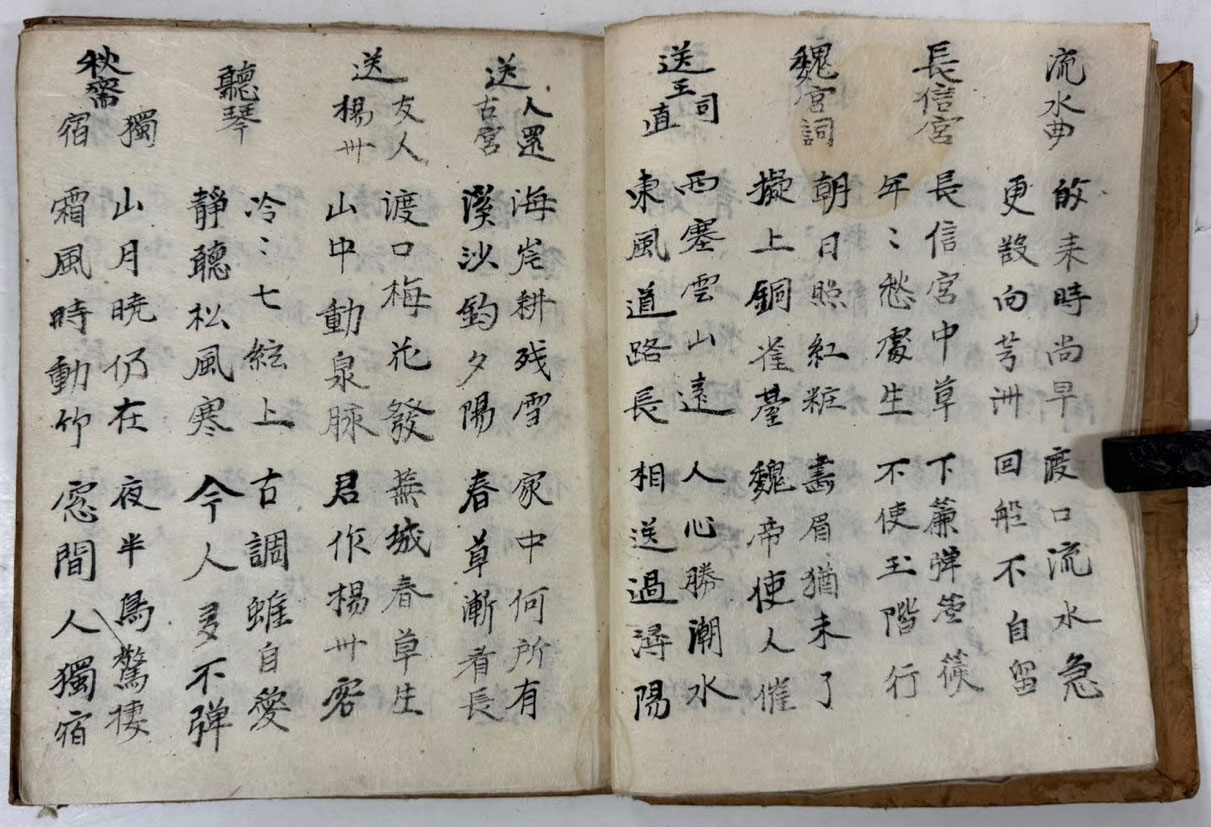 流水曲
皈来時尚早 渡口流水急
更散向芳洲 回船不自留
長信宮
長信宮中草 下簾弾箜篌
年〻愁處生 不使玉階行
魏宮詞
朝日照紅粧 畵眉猶未了
擬上銅雀臺 魏帝使人催
送王司直
西塞雲山遠 人心勝潮水
東風道路長 相送過潯陽
送人還古宮
海岸耕残雪 家中何所有
溪沙釣夕陽 春草漸看長
送友人楊州
渡口梅花發 蕪城春草生
山中動泉脉 君作楊州客
聽琴
冷〻七絃上 古調雖自愛
靜聽松風寒 今人多不弾
秋齋獨宿
山月曉仍在 夜半鳥驚棲
霜風時動竹 窓間人獨宿